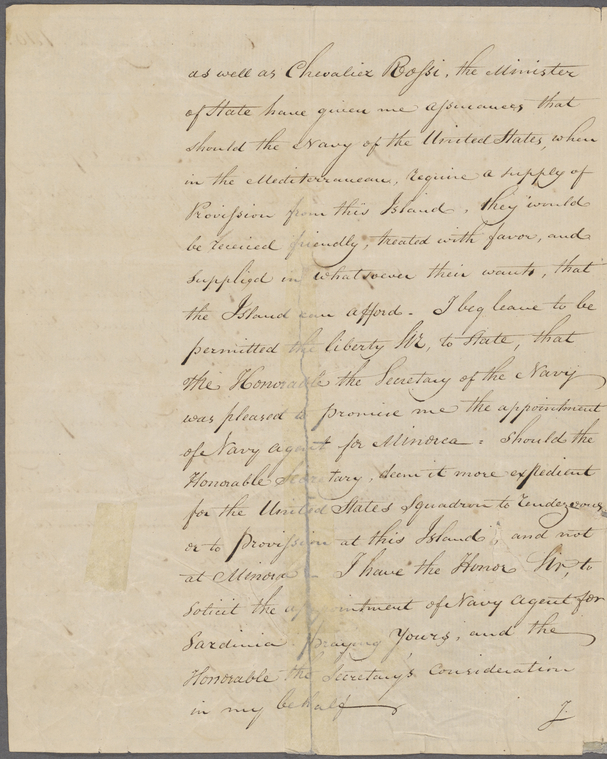 as well as Chevalier Rossi, the Minister
of State have given me assurances that
should the Navy of the United States, when
in the Mediterranean, require a supply of
Provission from this Island, they would
be received friendly, treated with favor, and
supplied in whatsoever their wants, that
the Island can afford - I beg leave to be
permitted the liberty Sir, to State, that
the Honorable the Secretary of the Navy
was pleased to promise me the appointment
of Navy agent for Minorca = should the
Honorable Secretary, deem it more expedient
for the United States Squadron to rendezvous
or to provission at this Island, and not
at Minorca - I have the Honor Sir, to
solicit the appointment of Navy Agent for
Sardinia praying Yours, and the
Honorable the Secretary's consideration
in my behalf
J.